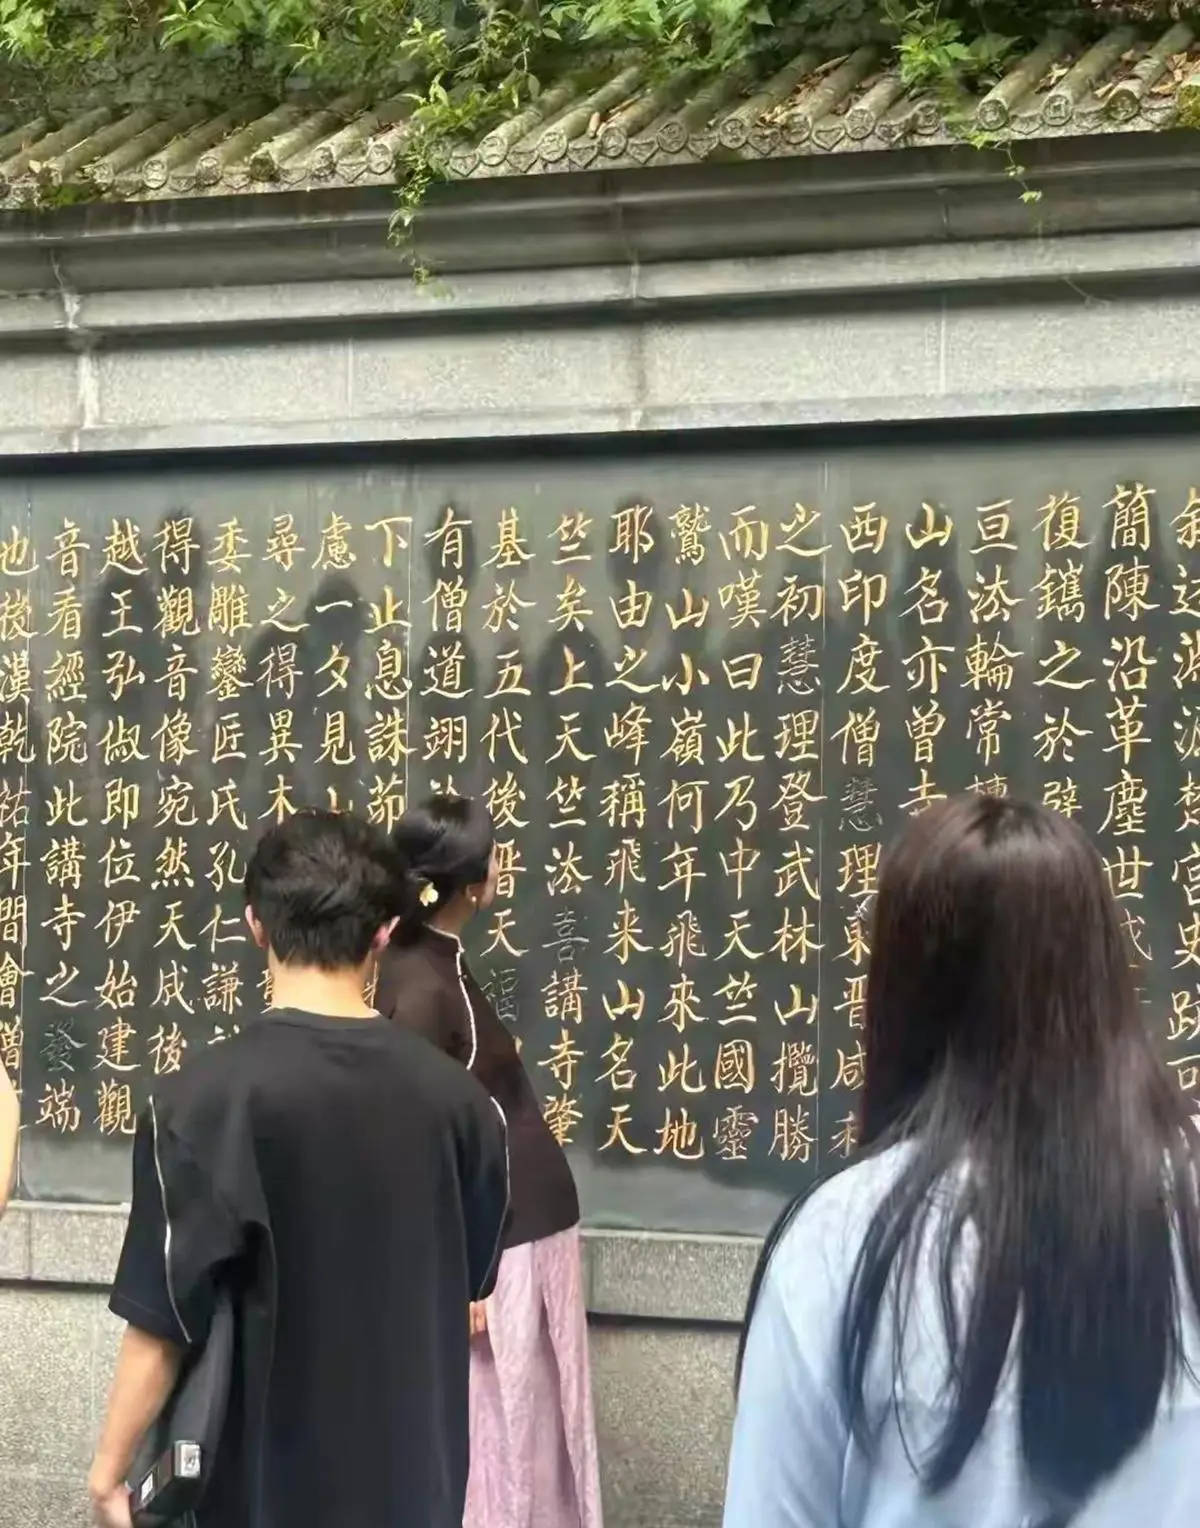 簡陳沿革塵世
復鐫之於
亘法輪常轉
山名亦曾
西印度僧慧理東晋咸和
之初慧理登武林山攬勝
而嘆曰此乃中天竺國靈
鷲山小嶺何年飛來此地
耶由之峰稱飛来山名天
竺矣上天竺法喜講寺肇
基於五代後晋天福
有僧道翊
下止息誅茆
慮一夕見
尋之得異木
委雕鑾匠氏孔仁謙
得觀音像宛然天成後
越王弘俶即位伊始建觀
音看經院此講寺之發端
也後漢乾祐年間僧